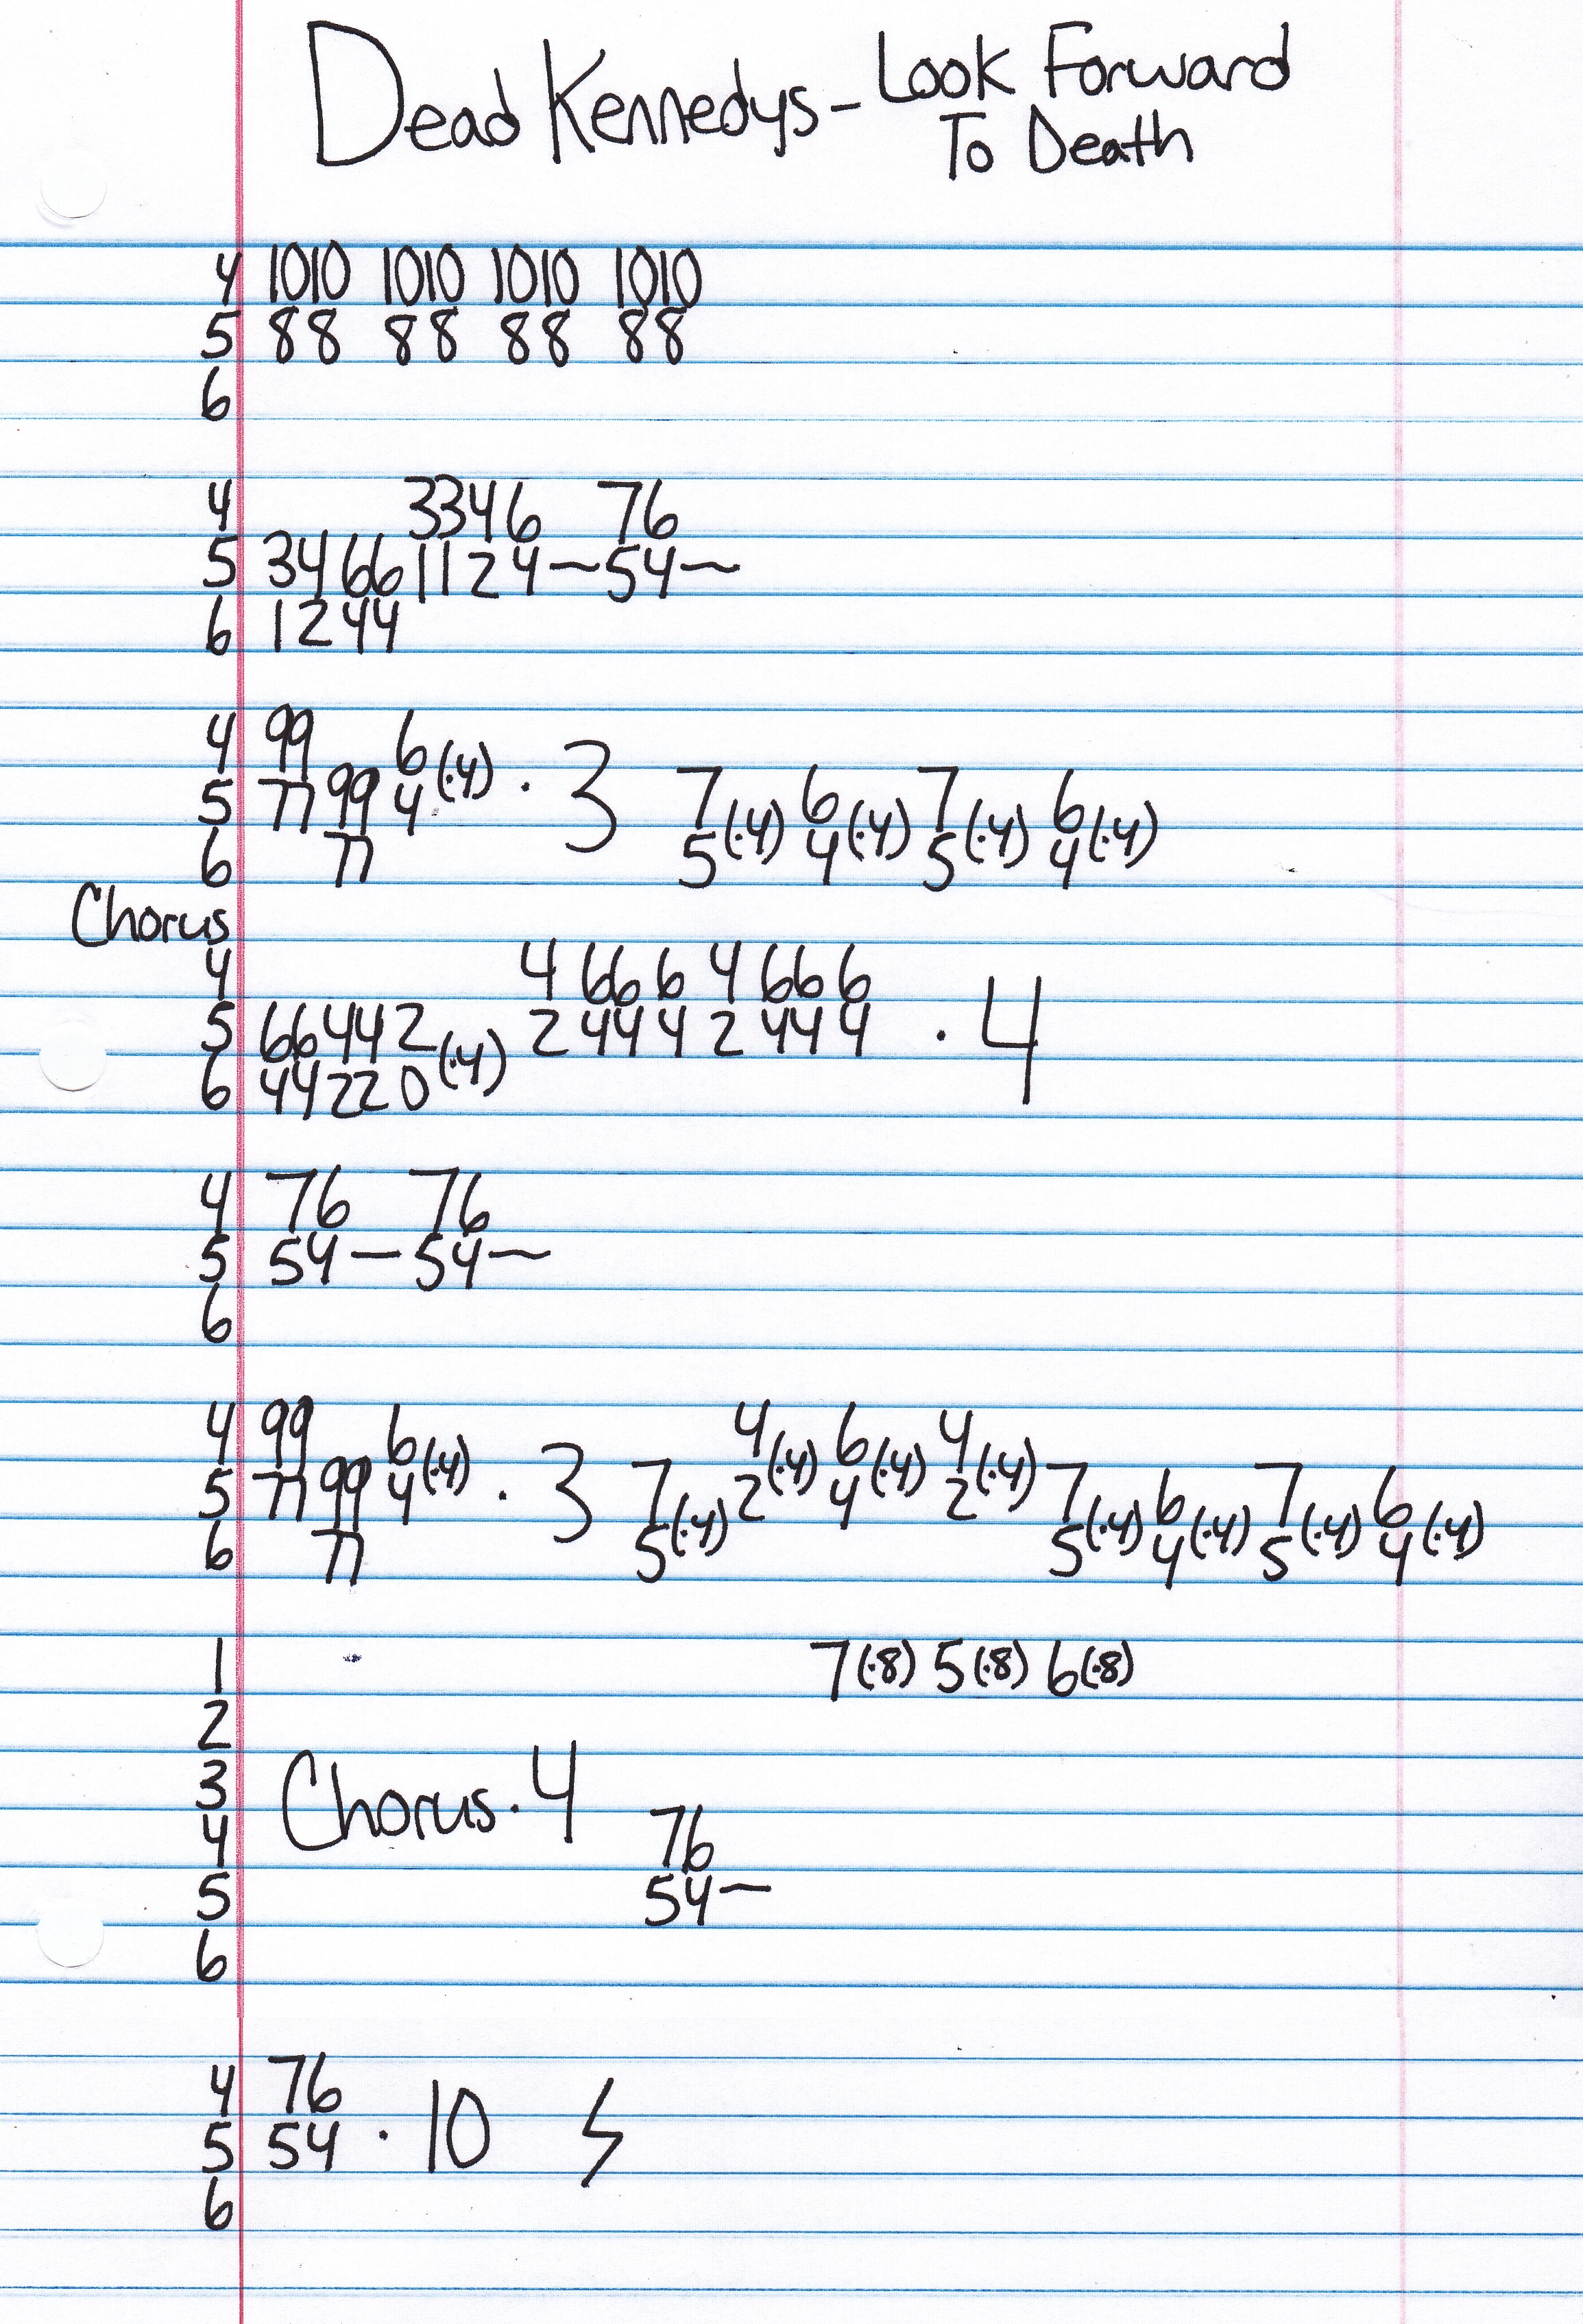 Dead Kennedys - Look Forward
To Death
4 1010 1010 1010 1010
5 88 88 88 88
6
4 3346 76
5 3466 1124~54~
6 1244
4 99 6
5 77 99 4 (·4) · 3 7 6 7 6
6 77 5 (·4) 4 (·4) 5 (·4) 4 (·4)
Chorus
4 4 66 6 4 66 6
5 66442 2 44 4 2 44 4 · 4
6 44220 (·4)
4 76 76
5 54 — 54 ~
6
4 99 6 4 6 4
5 77 99 4 (·4) · 3 7 2 (·4) 4 (·4) 2 (·4) 7 6 7 6
6 77 5 (·4) 5 (·4) 4 (·4) 5 (·4) 4 (·4)
1 7 (·8) 5 (·8) 6 (·8)
2
3 Chorus · 4
4 76
5 54 ~
6
4 76
5 54 · 10
6